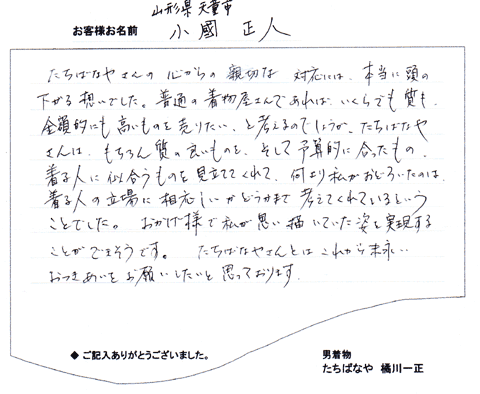 山形県天童市
お客様お名前 小國 正人
たちばなやさんの心からの親切な対応には、本当に頭の
下がる想いでした。普通の着物屋さんであれば、いくらでも質も、
金額的にも高いものを売りたい、と考えるのでしょうが、たちばなや
さんは、もちろん質の良いものを、そして予算的に合ったもの、
着る人に似合うものを見立ててくれて、何より私がおどろいたのは、
着る人の立場に相応しいかどうかまで考えてくれているという
ことでした。おかげ様で私が思い描いていた姿を実現する
ことができそうです。たちばなやさんとはこれから末永い
おつきあいをお願いしたいと思っております。
◆ ご記入ありがとうございました。
男着物
たちばなや 橘川一正